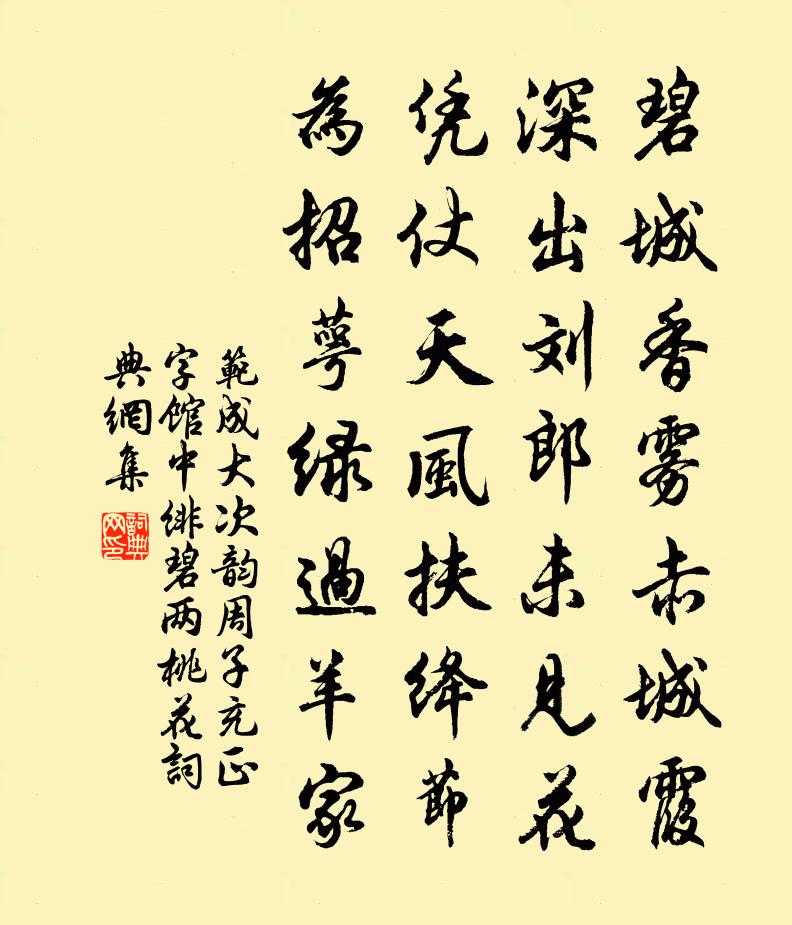 碧城香雾赤城霞
深出刘郎未见花
凭仗天風扶绛節
為招萼绿過羊家
範成大次韵周子充正
字馆中绯碧两桃花詞
典網集
詞典
网印